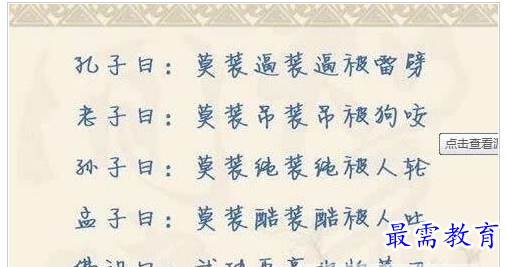 孔子曰：莫装逼装逼被雷劈
老子曰：莫装吊装吊被狗咬
点击查看源
孙子曰：莫装纯装纯被人轮
孟子曰：莫装酷装酷被人吐
最需教育